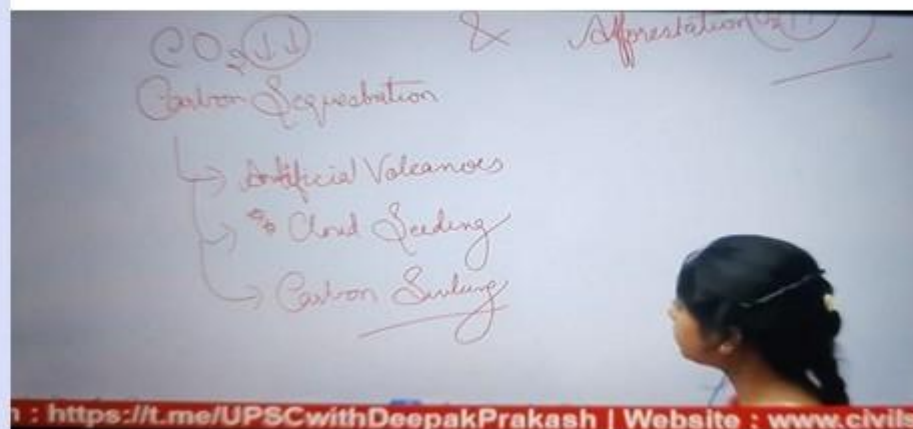 CO₂ ↓↓ & Afforestation (O₂ ↑↑)
Carbon Sequestration
→ Artificial Volcanoes
→ Cloud Seeding
→ Carbon
: https://t.me/UPSCwithDeepakPrakash | Website : www.civils